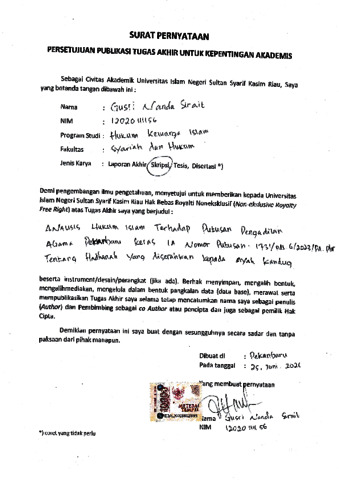 SURAT PERNYATAAN
PERSETUJUAN PUBLIKASI TUGAS AKHIR UNTUK KEPENTINGAN AKADEMIS
Sebagai Civitas Akademik Universitas Islam Negeri Sultan Syarif Kasim Riau, Saya
yang bertanda tangan dibawah ini :
Nama : Gusti Nanda Sirait
NIM : 12020111156
Program Studi : Hukum Keluarga Islam
Fakultas : Syariah dan Hukum
Jenis Karya : Laporan Akhir, Skripsi, Tesis, Disertasi *)
Demi pengembangan ilmu pengetahuan, menyetujui untuk memberikan kepada Universitas
Islam Negeri Sultan Syarif Kasim Riau Hak Bebas Royalti Noneksklusif (Non-eksklusive Royalty
Free Right) atas Tugas Akhir saya yang berjudul :
Analisis Hukum Islam Terhadap Putusan Pengadilan
Agama Pekanbaru Kelas IA Nomor Putusan
Tentang Hadhanah yang diserahkan kepada Ayah Kandung
beserta instrument/desain/perangkat (jika ada). Berhak menyimpan, mengalih bentuk,
mengalihmediakan, mengelola dalam bentuk pangkalan data (data base), merawat serta
mempublikasikan Tugas Akhir saya selama tetap mencatumkan nama saya sebagai penulis
(Author) dan Pembimbing sebagai co Author atau pencipta dan juga sebagai pemilik Hak
Cipta.
Demikian pernyataan ini saya buat dengan sesungguhnya secara sadar dan tanpa
paksaan dari pihak manapun.
Dibuat di : Pekanbaru
Pada tanggal : 25, Juni
Yang membuat pernyataan
METERAI
TEMPEL
Nama : Gusti Nanda Sirait
NIM 12020111156
*) coret yang tidak perlu